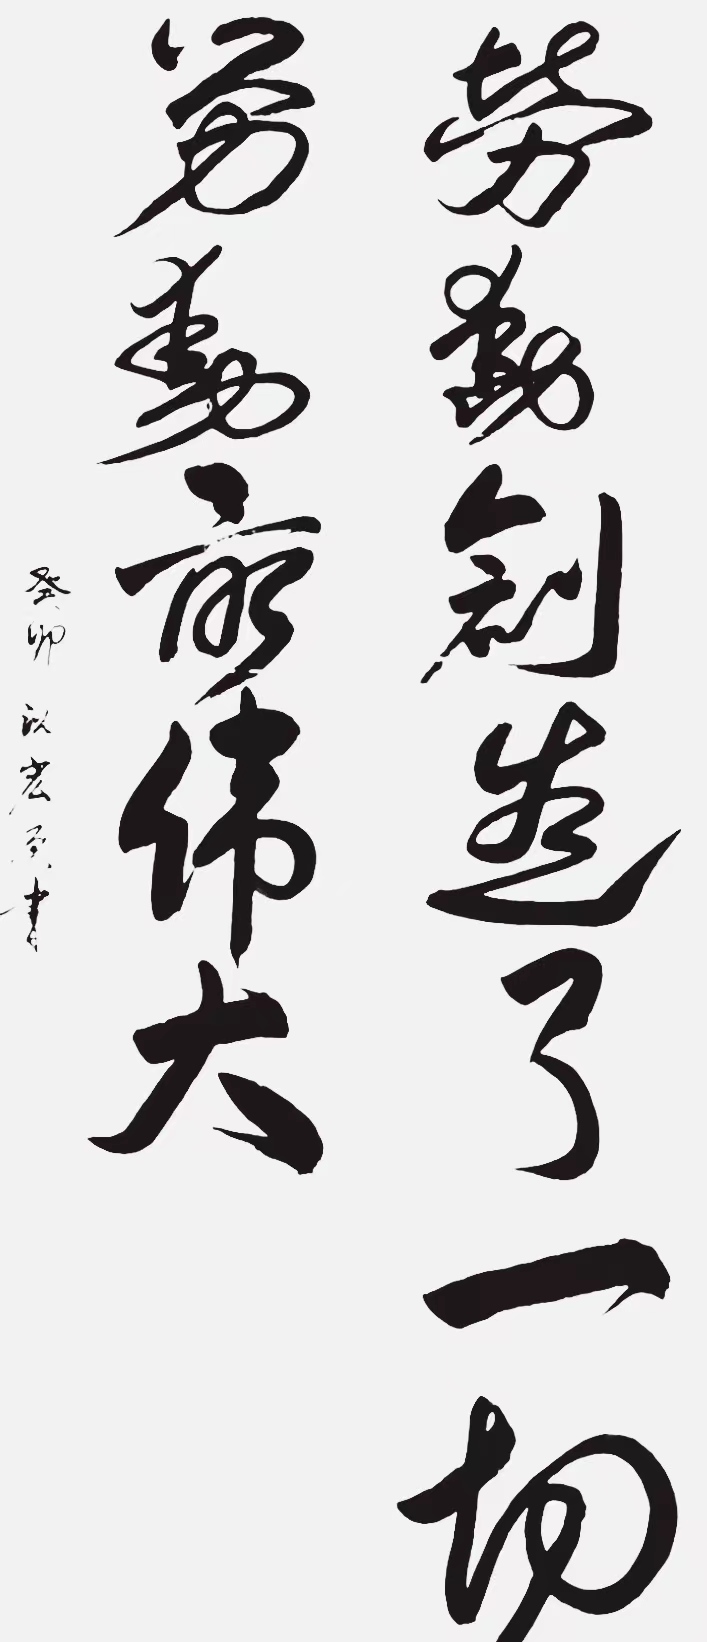 劳動創造了一切
劳動最伟大
癸卯 宏 书